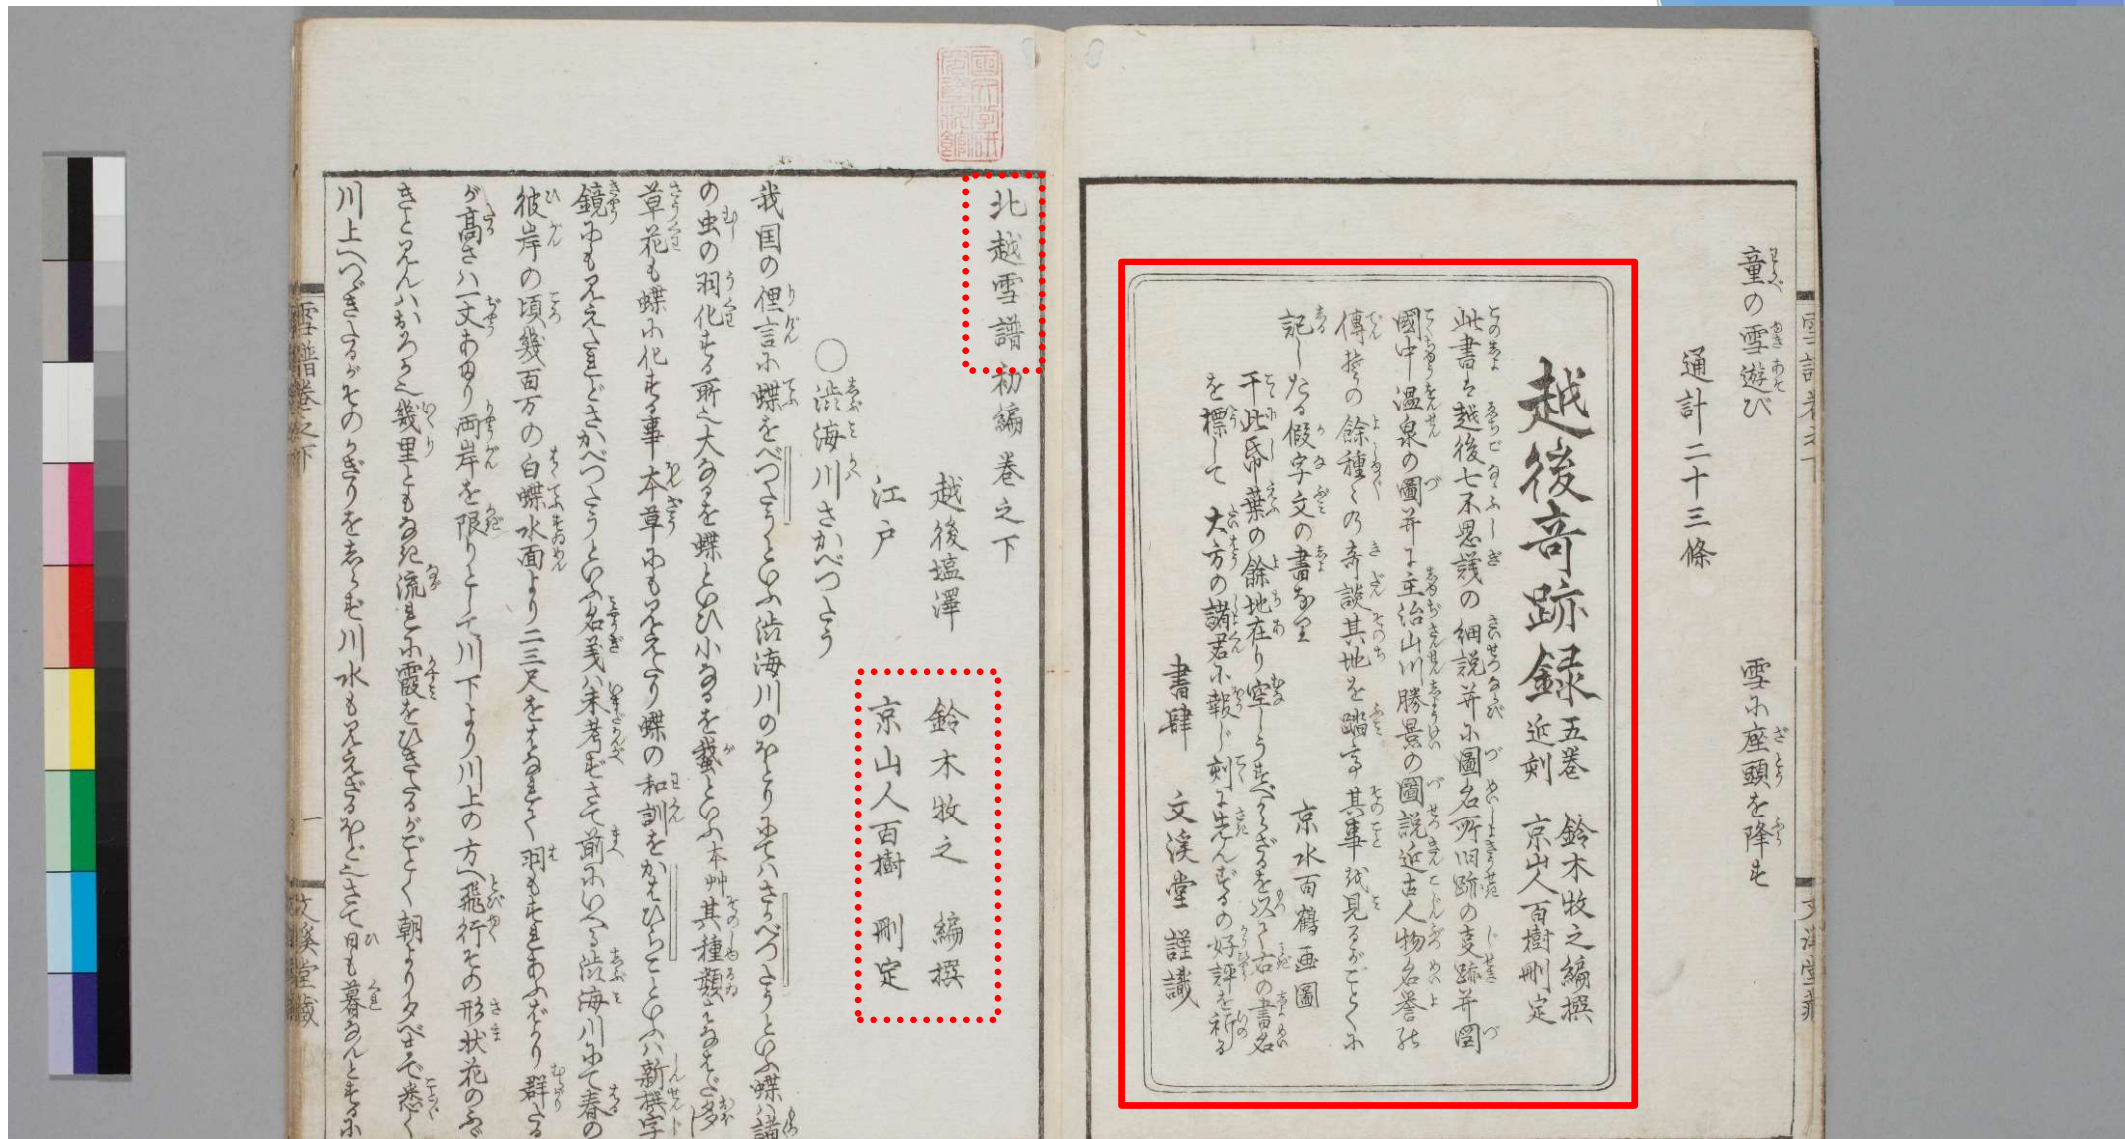 童の雪遊び
雪に座頭を降す
通計二十三條
越後奇跡録 五巻 近刻 鈴木牧之編撰 京山人百樹刪定
此書は越後七不思議の細説并に圖名所旧跡の支跡并圖
國中温泉の圖并に主治山川勝景の圖説近古人物名誉の
傳等の餘種々の奇談其地を踏て其事を見るがごとくに
記したる假字文の書なり 京水百鶴画圖
于此帋葉の餘地在り空しうすべからざるを以て右の書名
を標して大方の諸君に報じ刻に先んずるの好評を祈る
書肆 文溪堂謹識
北越雪譜初編巻之下
越後塩澤 鈴木牧之 編撰
江戸 京山人百樹 刪定
○渋海川さかべつたう
我国の俚言に蝶をべつたうといふ渋海川のほとりにてはさかべつたうといふ蝶は諸
の虫の羽化する所也大なるを蝶といひ小なるを蛾といふ本艸其種類はなはだ多し
草花も蝶に化する事本草にも見えたり蝶の和訓をかはひらこといふは新撰字
鏡にも見えたれどさかべつたうといふ名義は未考ずさて前にいへる渋海川にて春の
彼岸の頃幾百万の白蝶水面より二三尺をはなれて羽もすれあふばかり群たる
が高さは一丈あまり両岸を限りとして川下より川上の方へ飛行その形状花のふゞ
きと見んはおろか也幾里ともなき流に霞をひきたるがごとく朝より夕べまで悉く
川上へつゞきたるがそのかぎりをしらず川水も見えざるほど也さて日も暮なんとするに
雪譜巻之下
一
文溪堂藏